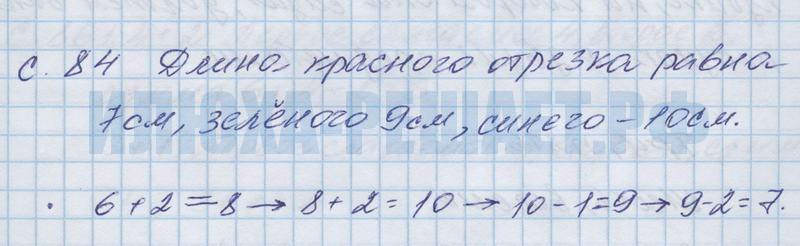 с. 84 Длина красного отрезка равна
ИЛЮХА-РЕШАЕТ.РФ
7см, зелёного 9см, синего - 10см.
. 6 + 2 = 8 → 8 + 2 = 10 → 10 - 1 = 9 → 9 - 2 = 7.